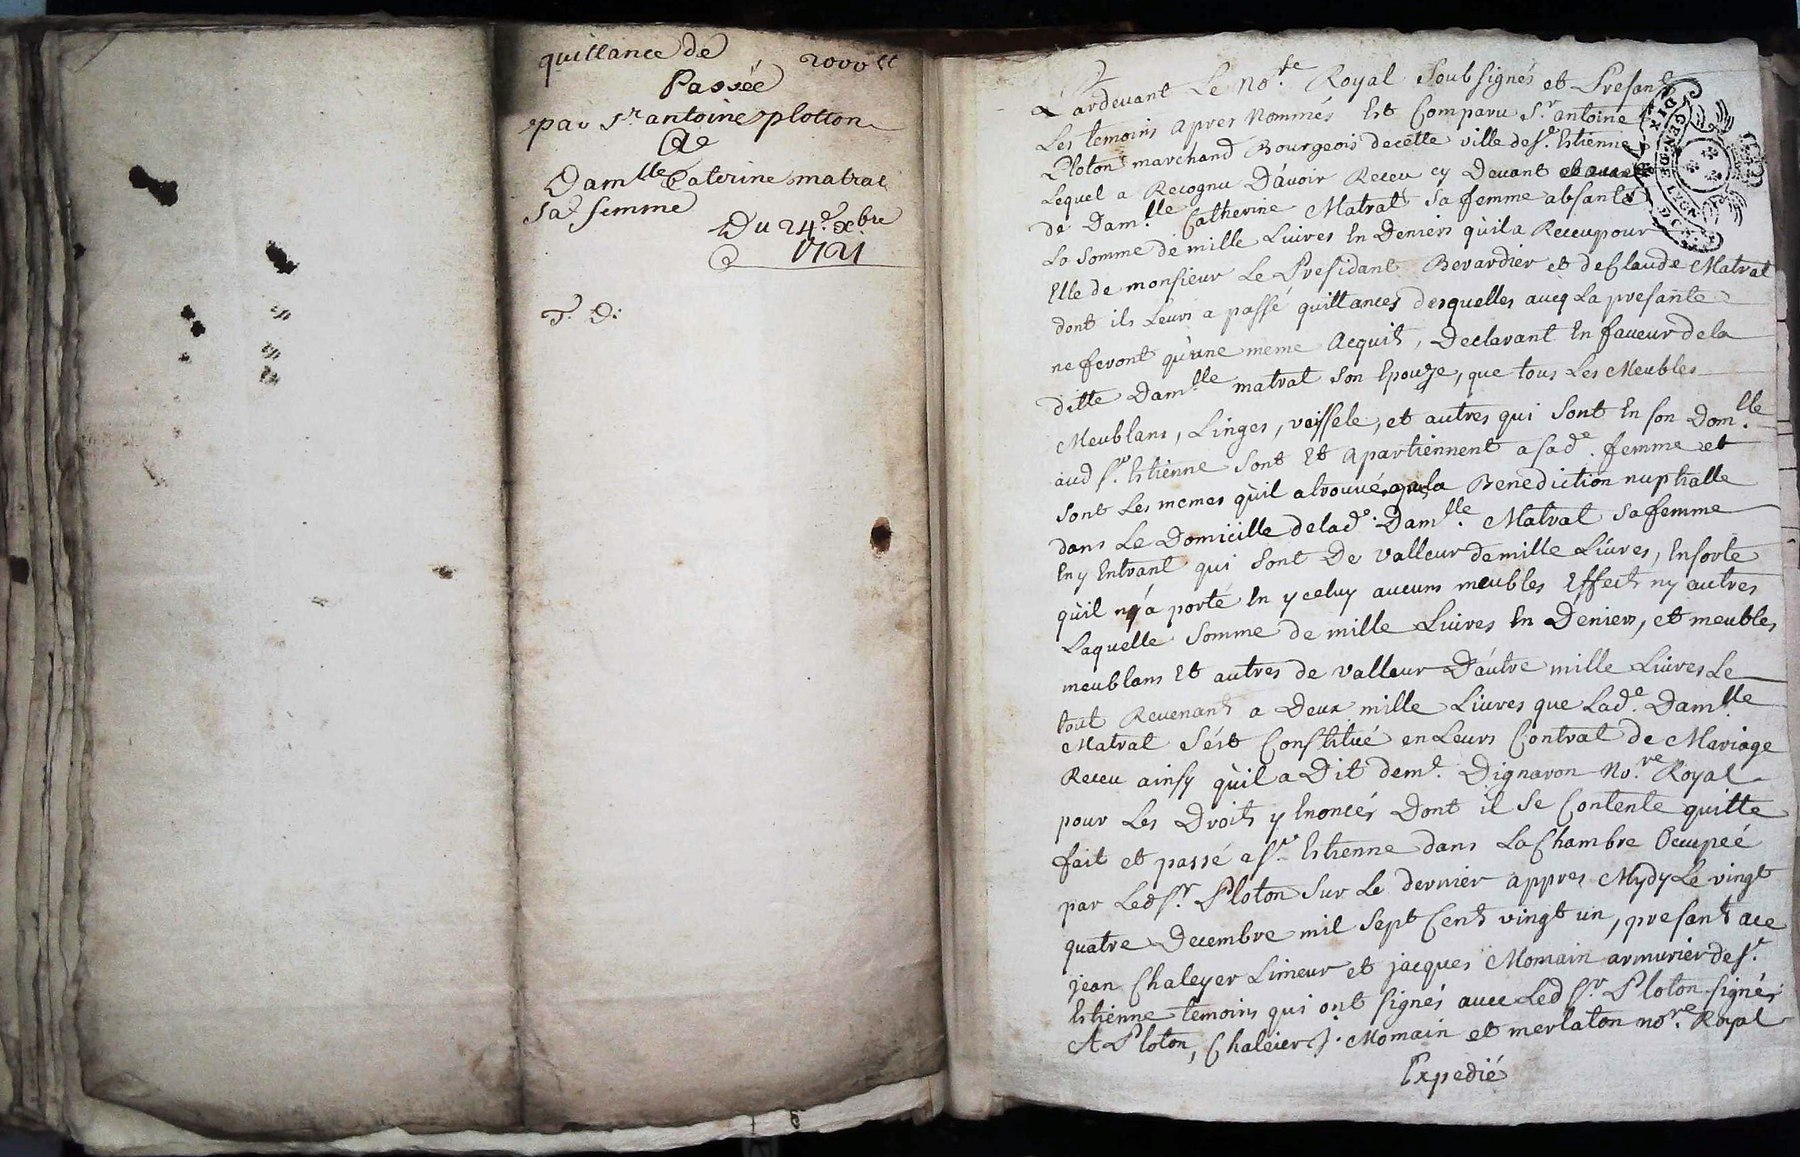 quittance de 2000 tt
Passée
par Sr. antoine plotton
A de
Damlle Caterine matrat
sa femme
Du 24e. xbre
1721
T. D:
Pardevant Le Nore. Royal Soubsignés et Presant
Les temoins apres Nommés Est Comparu Sr. antoine
Ploton marchand Bourgeois de cette ville de St. Estienne
Lequel a Recognu D'avoir Receu cy Devant
de Damlle. Catherine Matrat sa femme absante
La Somme de mille Livres En Deniers qu'il a Receu pour
Elle de monsieur Le Presidant Berardier et de Claude Matrat
dont ils Leurs a passé quittances desquelles aucq La presante
ne feront qu'une meme Acquit, Declarant En faveur de la
ditte Damlle matrat Son Epouze, que tous Les Meubles
Meublans, Linges, vaissele, et autres qui Sont En son Domlle.
aud St. Estienne Sont Et apartiennent a sade. femme et
Sont Les memes qu'il a trouvés apres la Benediction nuptialle
dans Le Domicille de lade. Damlle. Matrat sa femme
En y Entrant qui Sont De valleur de mille Livres, En sorte
qu'il n'y a porté En yceluy aucuns meubles Effects ny autres
Laquelle Somme de mille Livres En Deniers, et meubles
meublans Et autres de valleur D'autre mille Livres Le
tout Revenant a Deux mille Livres que Lade. Damlle
Matrat S'est Constitué en Leurs Contrat de Mariage
Receu ainsy qu'il a Dit de me. Dignaron Nore. Royal
pour Les Droits y Enoncés Dont il Se Contente quitte
fait et passé a St. Estienne dans La Chambre Occupée
par Led Sr. Ploton Sur Le dernier appres Mydy Le vingt
quatre Decembre mil Sept Cent vingt un, presants a ce
jean Chaleyer Limeur et jacques Momain armurier de St.
Estienne temoins qui ont signés avec Led Sr. Ploton signés
A Ploton, Chaleier, J. Momain et merlaton nore. Royal
Expedié
GEN. DE LYON